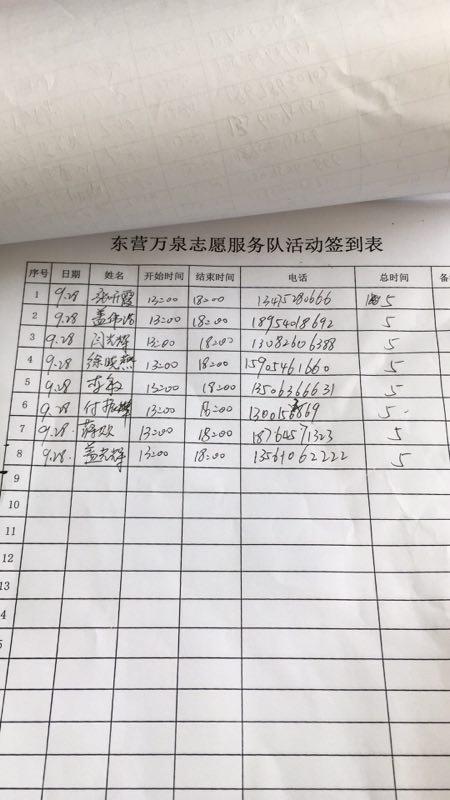 东营万泉志愿服务队活动签到表
序号 日期 姓名 开始时间 结束时间 电话 总时间 备
1 9.28 13:00 18:00 13475280666 5
2 9.28 13:00 18:00 18954018692 5
3 9.28 闫光辉 13:00 18:00 13082606388 5
4 9.28 徐晓燕 13:00 18:00 15905461660 5
5 9.28 李敏 13:00 18:00 13506366631 5
6 9.28 13:00 18:00 5
7 9.28 蒋欣 13:00 18:00 18764571323 5
8 9.28 盖光辉 13:00 18:00 13561062222 5
9
10
11
12
13
4
5